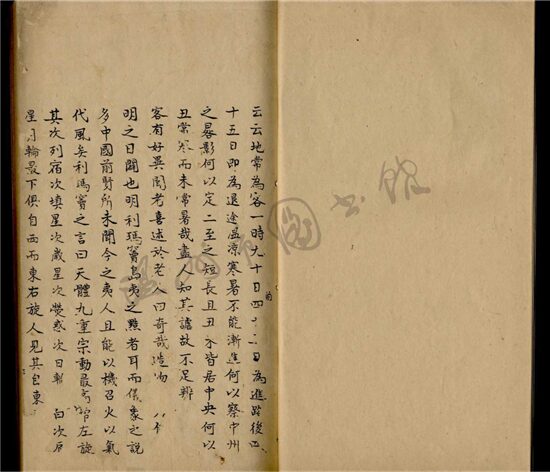 云云地常為客一時九十日四十二日為進路後四
十五日即為退途温涼寒暑不能漸進何以察中州
之晷影何以定二至之短長且丑未皆居中央何以
丑常寒而未常暑哉盡人知其譫故不足辨
客有好異聞者喜述於老人曰奇哉造物
明之日闢也明利瑪竇島夷之黠者耳而儀象之說
多中國前賢所未聞今之夷人且能以機召火以氣
代風矣利瑪竇之言曰天體九重宗動最高帶左旋
其次列宿次填星次歲星次熒惑次日輪 白次辰
星月輪最下俱自西而東右旋人見其自東
的
圖書館